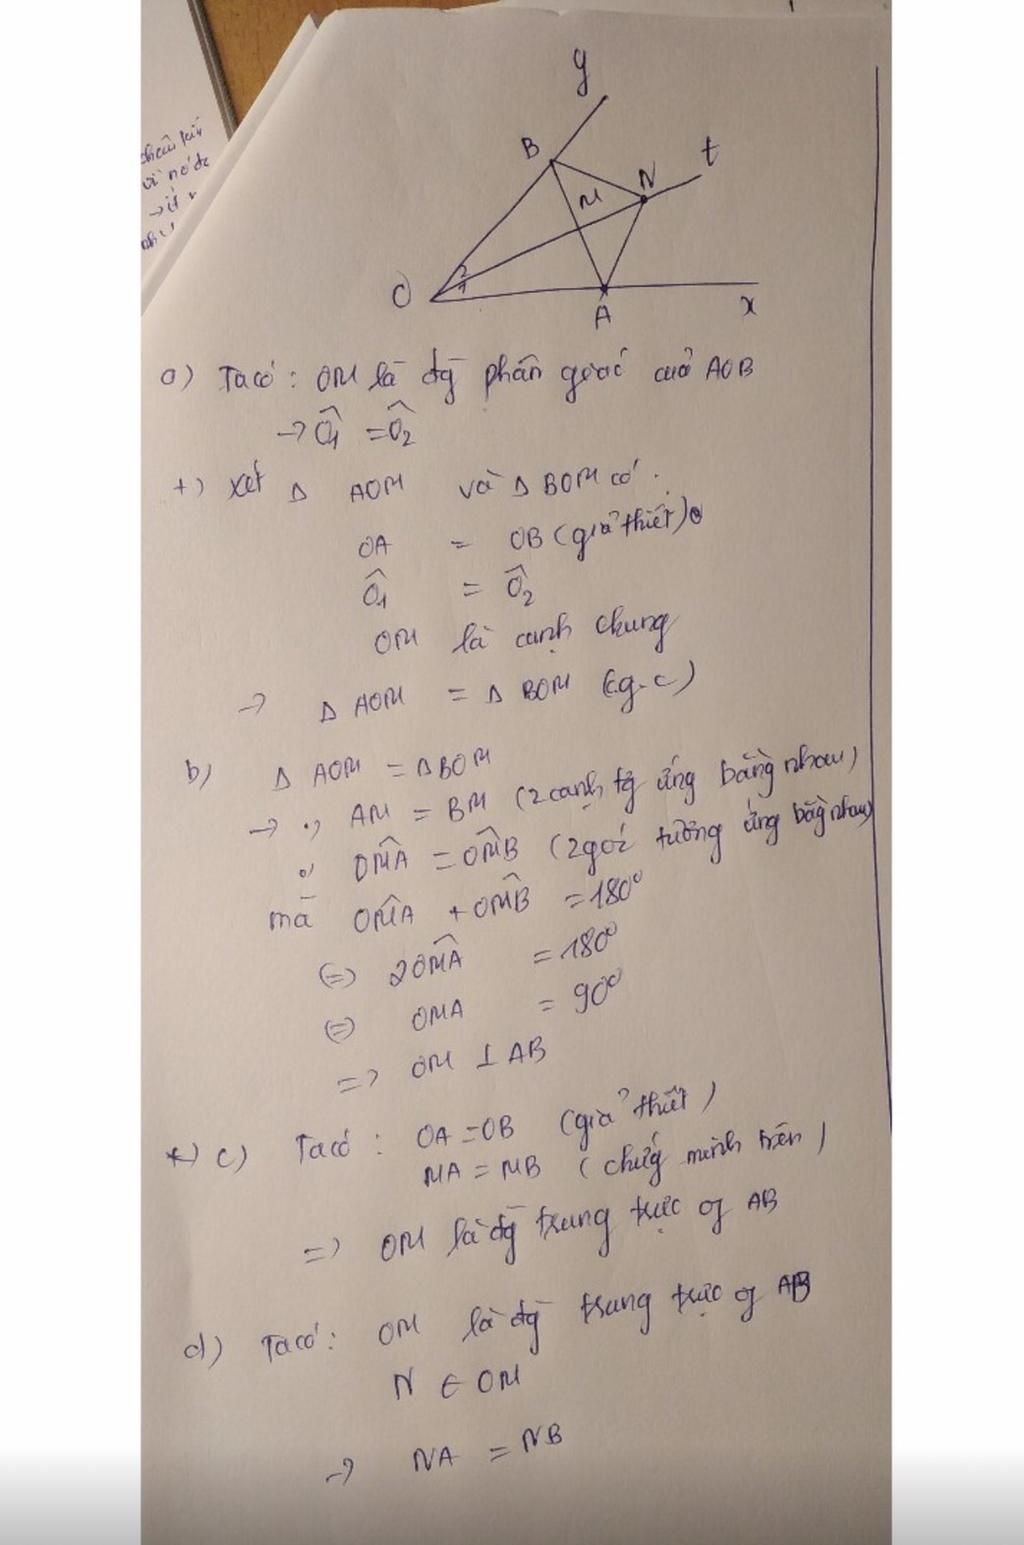 chau
vì nó
y
t
B
N
M
2
1
O
A
x
a) Ta có : OM là đg̃ phân giác của AOB
→ Ô1 = Ô2
+) Xét Δ AOM và Δ BOM có :
OA = OB (giả thiết)
Ô1 = Ô2
OM là cạnh chung
→ Δ AOM = Δ BOM (c.g.c)
b) Δ AOM = Δ BOM
→ •) AM = BM (2 cạnh tg̃ ứng bằng nhau)
•) OM̂A = OM̂B (2 góc tương ứng bằng nhau)
mà OM̂A + OM̂B = 180°
(=) 2OM̂A = 180°
(=) OMA = 90°
=> OM ⊥ AB
c) Ta có : OA = OB (giả thiết)
MA = MB (chứng minh trên)
=> OM là đg̃ trung trực of AB
d) Ta có : OM là đg̃ trung trực of AB
N ∈ OM
→ NA = NB